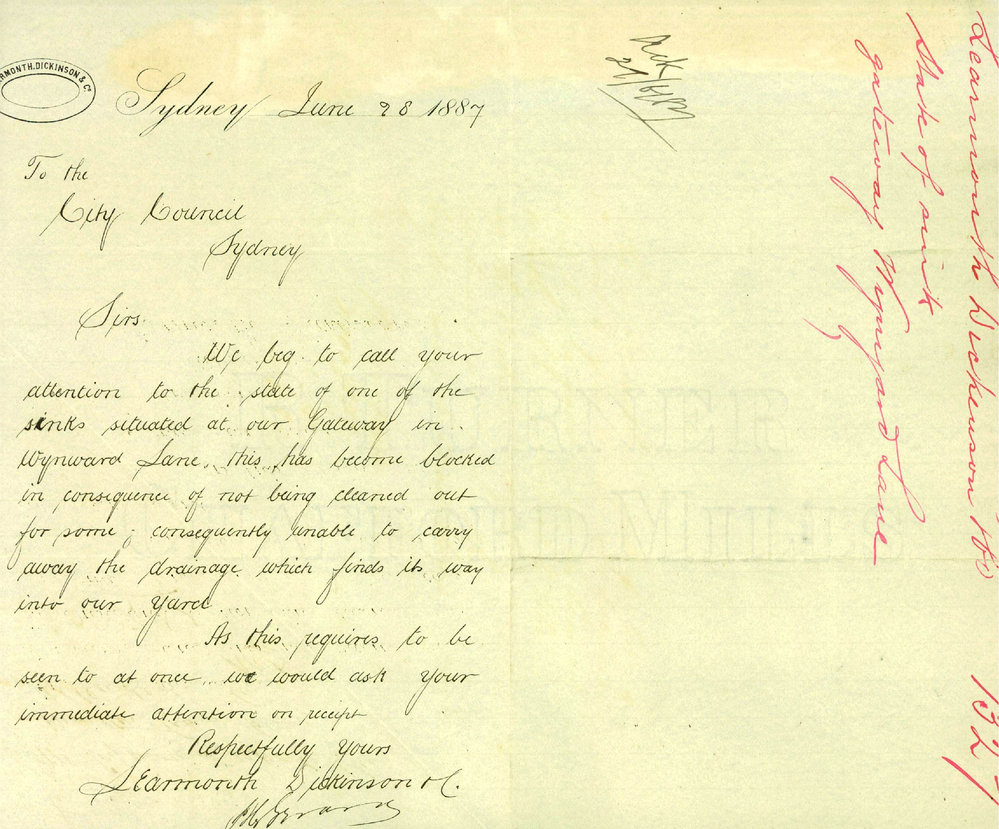 LEARMONTH, DICKINSON & Co
Sydney June 28 1887
To the
City Council
Sydney
Sirs
We beg to call your
attention to the state of one of the
sinks situated at our Gateway in
Wynward Lane, this has become blocked
in consequence of not being cleaned out
for some, consequently unable to carry
away the drainage which finds its way
into our Yard
As this requires to be
seen to at once we would ask your
immediate attention on receipt
Respectfully Yours
Learmonth Dickinson & C.
Ack
Learmonth Dickenson & Co
State of sink
gateway Wynyard Lane
1327